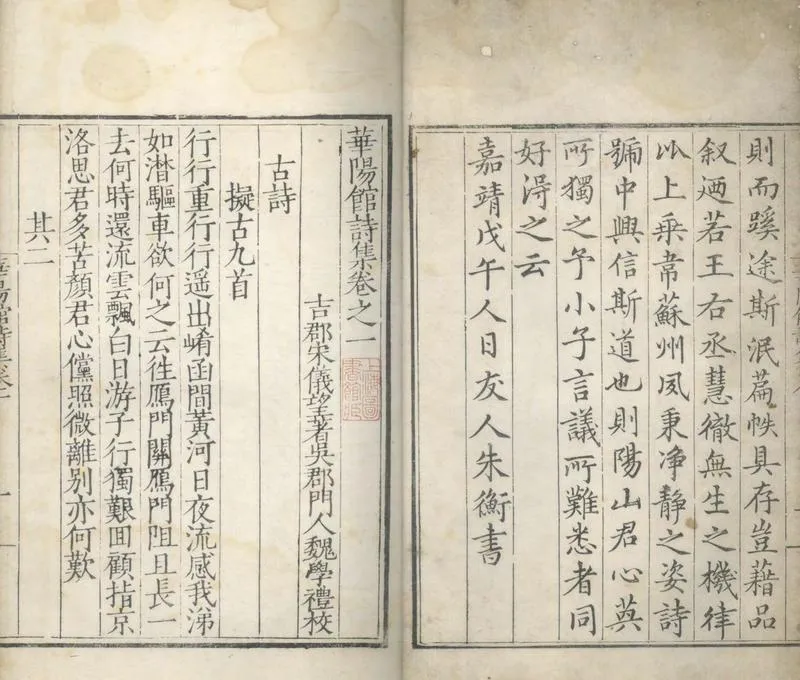 則而蹊途斯泯萹帙具存豈藉品
叙迺若王右丞慧徹無生之機律
以上乗韋蘇州夙秉净静之姿詩
號中興信斯道也則陽山君心英
所獨之予小子言議所難悉者同
好淂之云
嘉靖戊午人日友人朱衡書
華陽館詩集卷之一
上海圖書館藏
吉郡宋儀望著吳郡門人魏學禮校
古詩
擬古九首
行行重行行遥出崤函間黄河日夜流感我涕
如潸驅車欲何之云徃鴈門關鴈門阻且長一
去何時還流雲飄白日游子行獨艱回顧指京
洛思君多苦顏君心儻照微離別亦何歎
其二